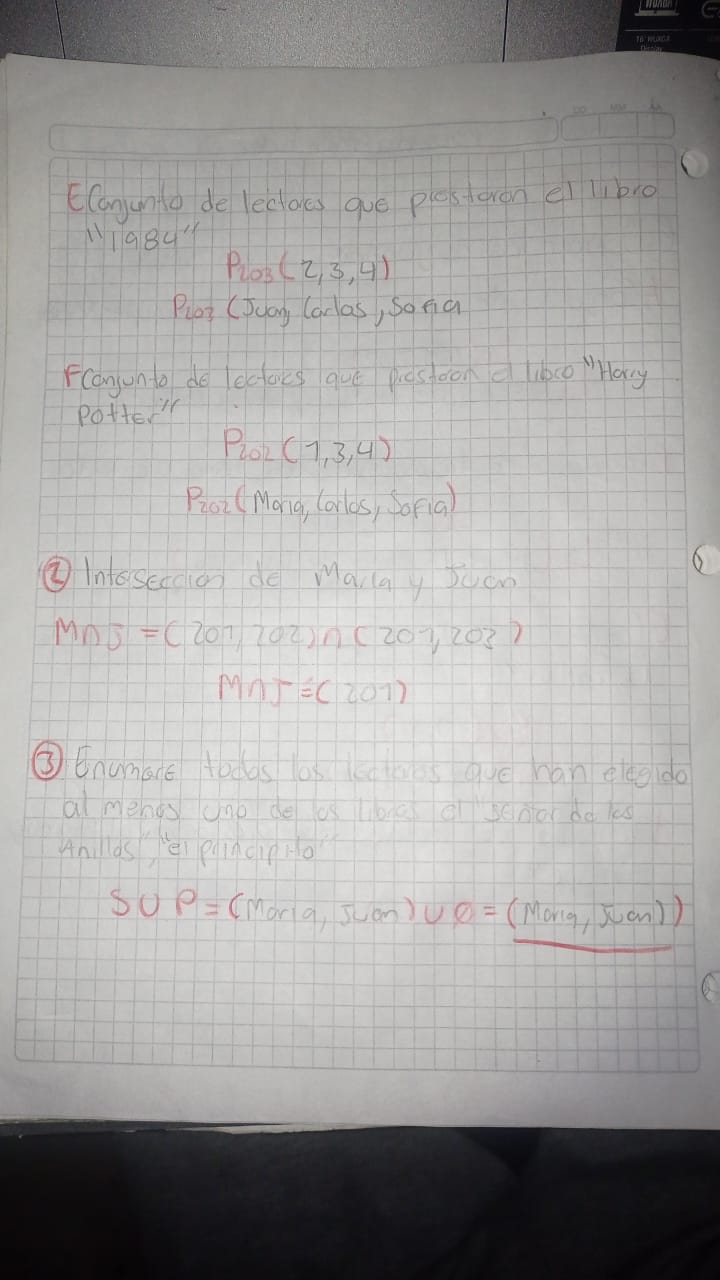 E Conjunto de lectores que prestaron el libro
"1984"
P203 (2,3,4)
P203 (Juan, Carlos, Sofia
F Conjunto de lectores que prestaron el libro "Harry
Potter"
P202 (1,3,4)
P202 (Maria, Carlos, Sofia)
② Interseccion de Maria y Juan
M∩J = (201, 202) ∩ (201, 203)
M∩J = (201)
③ Enumare todos los lectores que han elegido
al menos uno de los libros el "señor de los
Anillos", "el principito"
S U P = (Maria, Juan) U Ø = (Maria, Juan))